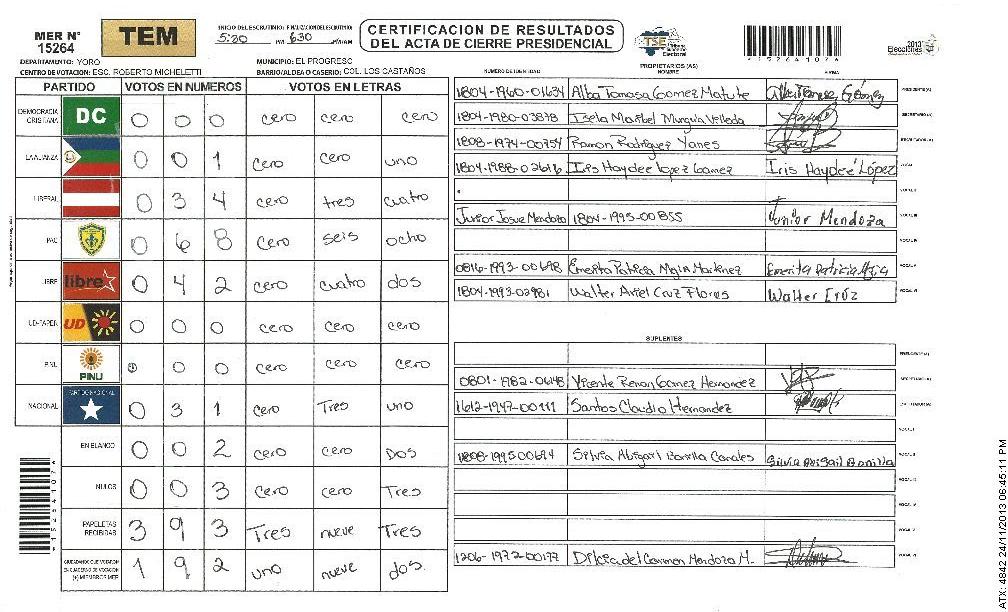 MER N° 15264
TEM
INICIO DEL ESCRUTINIO: 5:20 PM FINALIZACION DEL ESCRUTINIO 6:30 PM/AM
CERTIFICACION DE RESULTADOS
DEL ACTA DE CIERRE PRESIDENCIAL
TSE Tribunal Supremo Electoral
*15264107*
2013 Elecciones
DEPARTAMENTO: YORO
MUNICIPIO: EL PROGRESO
CENTRO DE VOTACION: ESC. ROBERTO MICHELETTI
BARRIO/ALDEA O CASERIO: COL. LOS CASTAÑOS
PARTIDO VOTOS EN NUMEROS VOTOS EN LETRAS
DEMOCRACIA CRISTIANA DC 0 0 0 cero cero cero
LA ALIANZA 0 0 1 cero cero uno
LIBERAL 0 3 4 cero tres cuatro
PAC 0 6 8 cero seis ocho
LIBRE libre 0 4 2 cero cuatro dos
UD-FAPER UD 0 0 0 cero cero cero
PINU PINU 0 0 0 cero cero cero
NACIONAL PARTIDO NACIONAL 0 3 1 cero Tres uno
EN BLANCO 0 0 2 cero cero Dos
NULOS 0 0 3 cero cero Tres
PAPELETAS RECIBIDAS 3 9 3 Tres nueve Tres
CIUDADANOS QUE VOTARON EN CUADERNO DE VOTACION (+) MIEMBROS MER 1 9 2 uno nueve dos.
PROPIETARIOS (AS)
NUMERO DE IDENTIDAD NOMBRE FIRMA
1804-1960-01634 Alba Tomasa Gomez Matute PRESIDENTE(A)
1804-1980-03878 Isela Maribel Munguia Velleda SECRETARIO(A)
1808-1974-00754 Ramon Rodriguez Yanes ESCRUTADOR(A)
1804-1988-02616 Iris Haydee Lopez Gomez Iris Haydeé López VOCAL I
VOCAL II
Junior Josue Mendoza 1804-1995-00855 Junior Mendoza VOCAL III
VOCAL IV
0816-1993-00698 Emerita Patricia Martinez Emerita Patricia VOCAL V
1804-1993-02981 Walter Ariel Cruz Flores Walter Cruz VOCAL VI
SUPLENTES
PRESIDENTE(A)
0801-1982-0648 Vicente Renan Gomez Hernandez SECRETARIO(A)
1612-1947-00111 Santos Claudio Hernandez ESCRUTADOR(A)
VOCAL I
1808-199500694 Silvia Abigail Bonilla Canales Silvia Abigail Bonilla VOCAL II
VOCAL III
VOCAL IV
VOCAL V
1206-1972-00177 Dilcia del Carmen Mendoza M. VOCAL VI
*15264107*
ATX: 4842 24/11/2013 06:45:11 PM